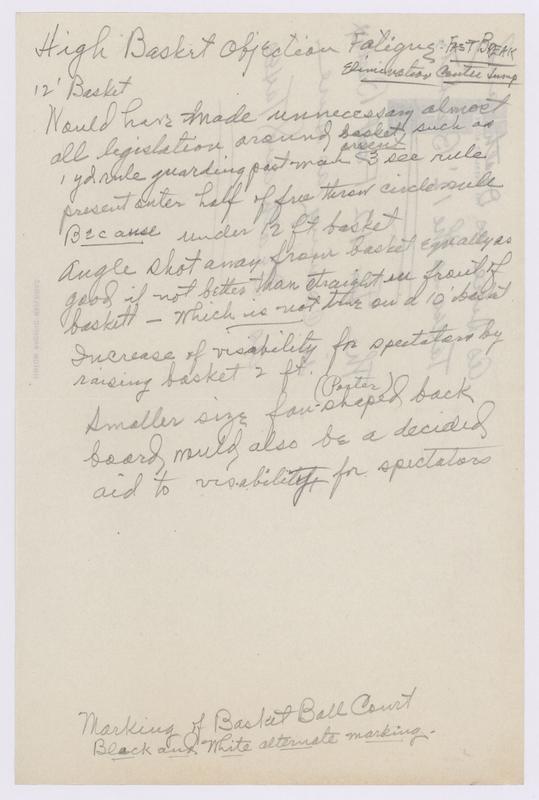 High Basket Objection Fatigue - FAST BREAK
Elimination Center Jump
12' Basket
Would have made unnecessary almost
all legislation around basket, such as
1 yd. rule guarding post man present 3 sec rule
present outer half of free throw circle rule
Because under 12 ft. basket
angle shot away from basket equally as
good if not better than straight in front of
basket - which is not true on a 10' basket
Increase of visability for spectators by
raising basket 2 ft.
Smaller size fan-shaped back (Porter)
board, would, also be a decided,
aid to visability for spectators
Marking of Basket Ball Court
Black and White alternate marking.